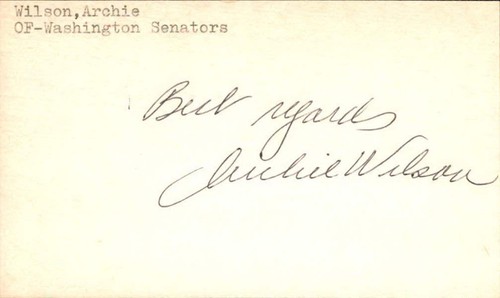 Wilson,Archie
OF-Washington Senators
Best regards
Archie Wilson